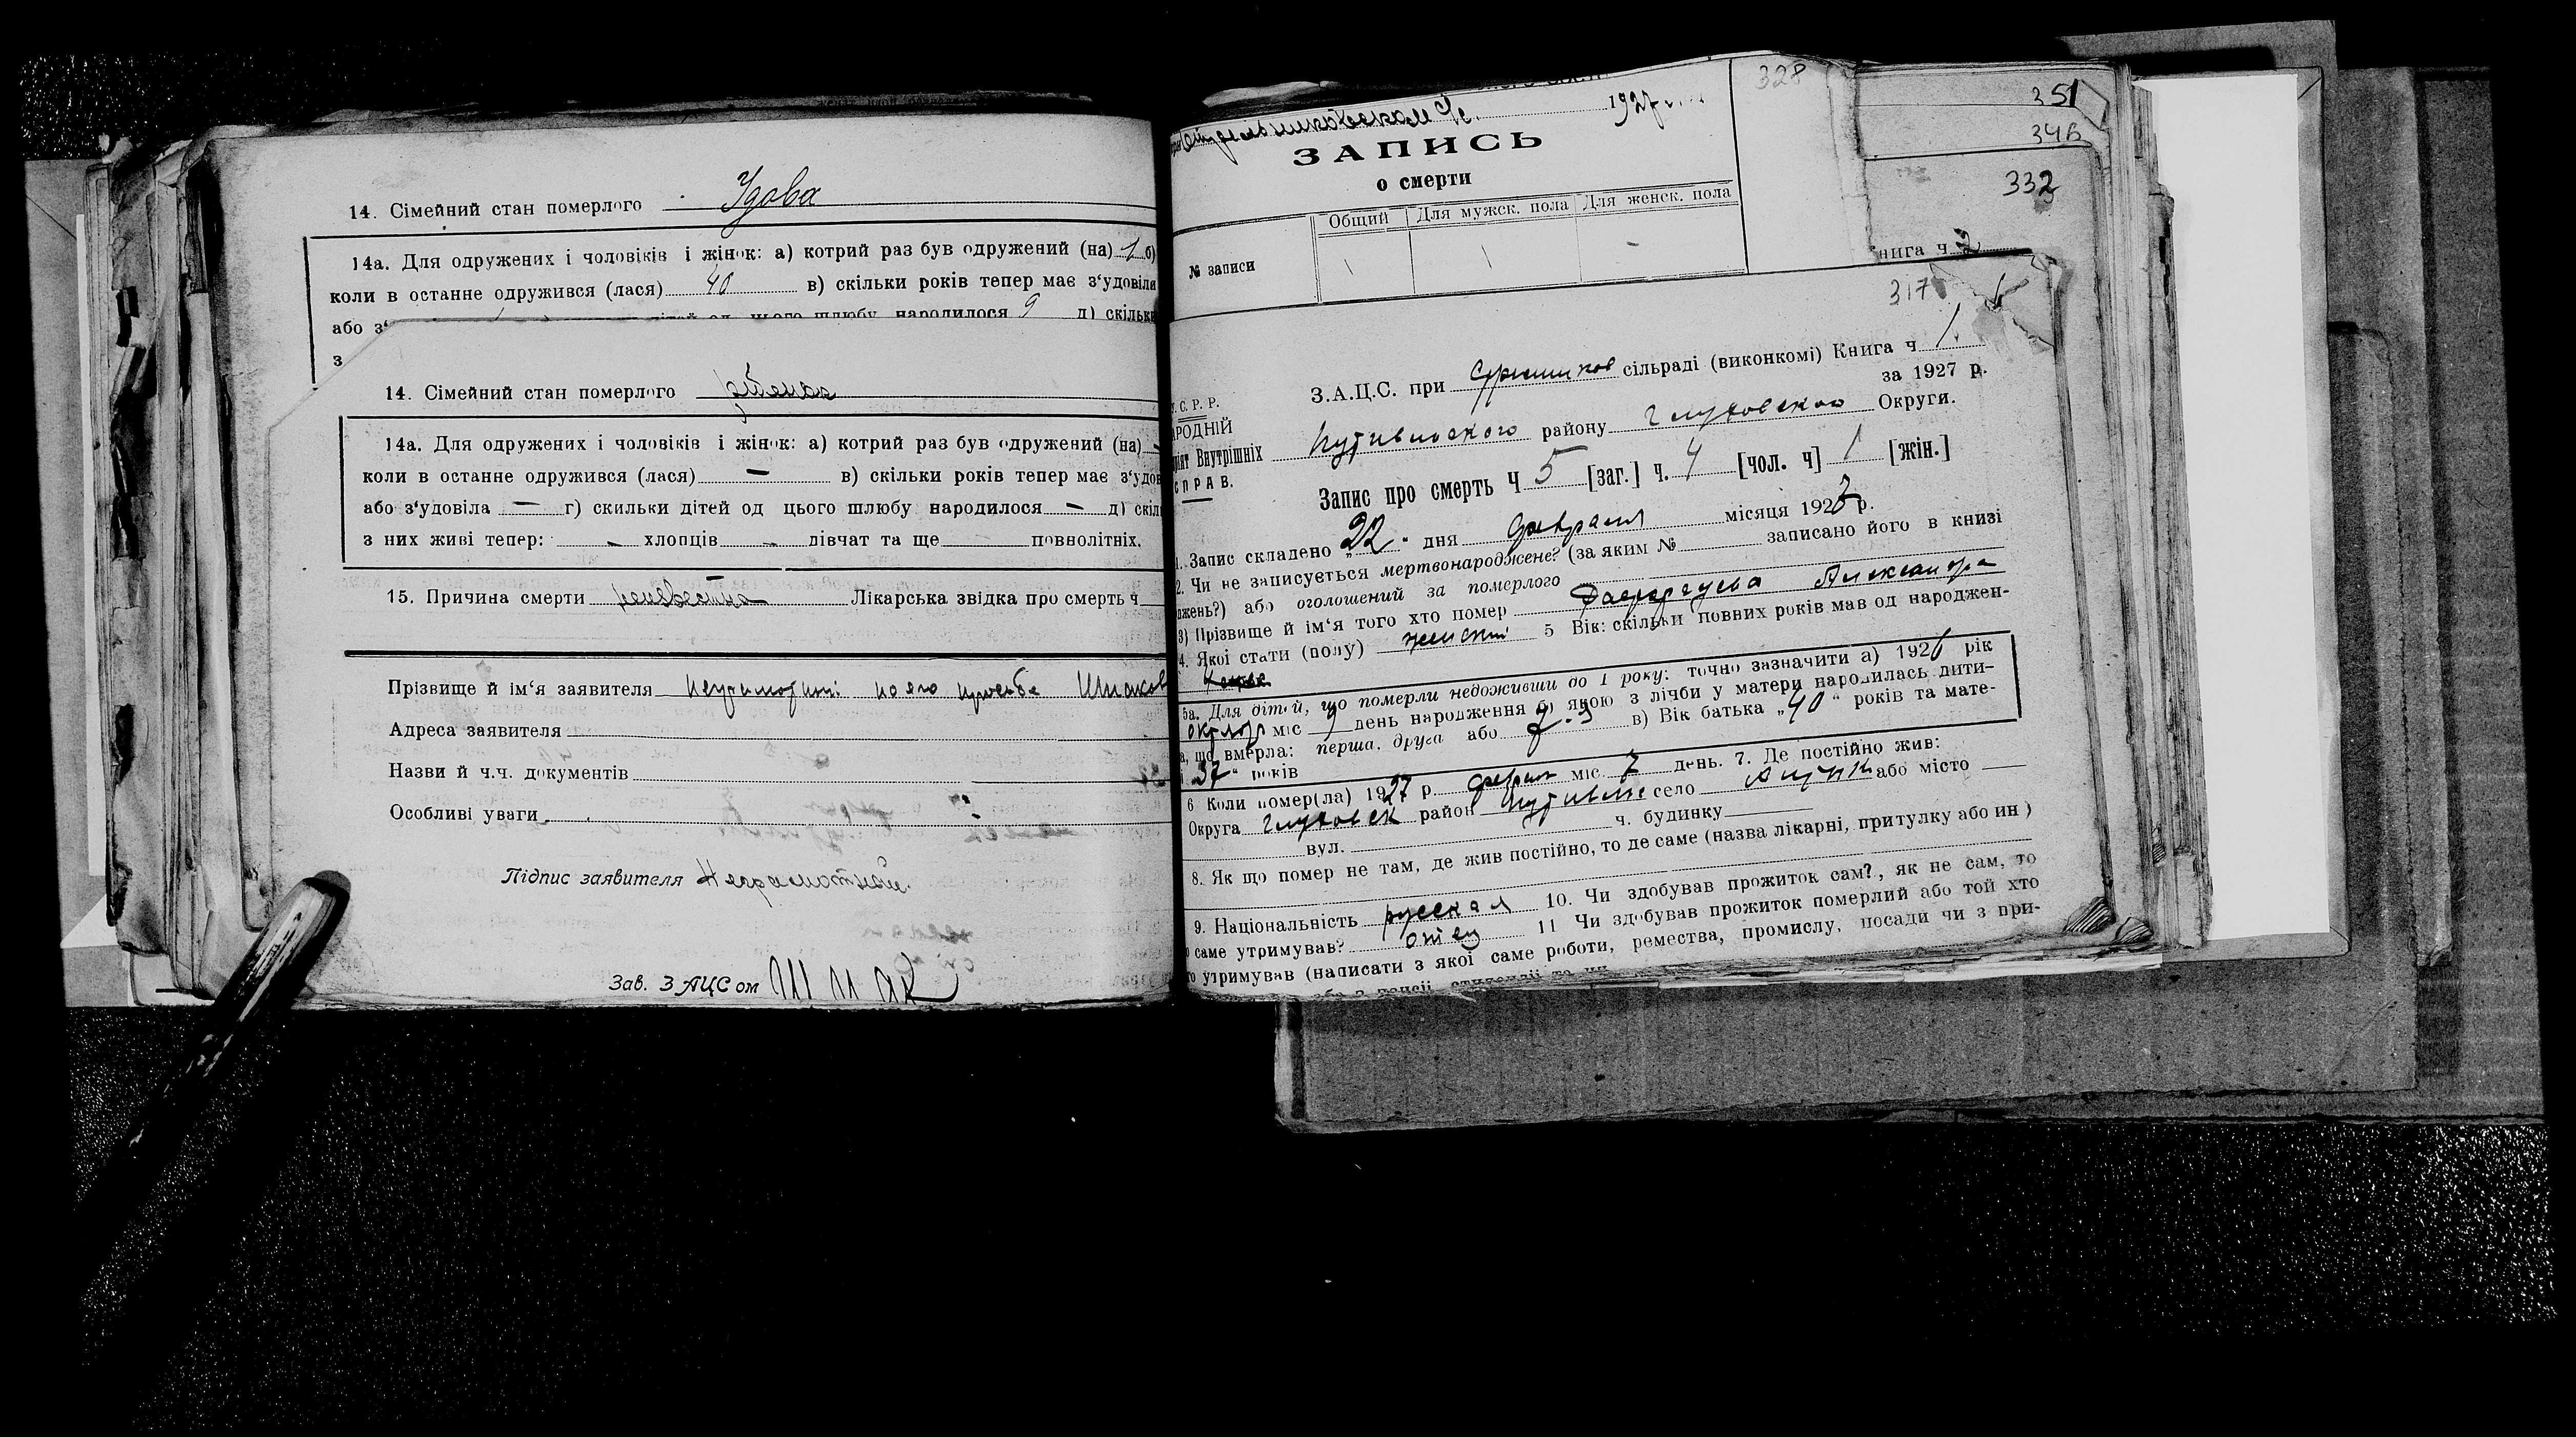 14. Сімейний стан померлого Удова
14а. Для одружених і чоловіків і жінок: а) котрий раз був одружений (на) 1 б)
коли в останне одружився (лася) 40 в) скільки років тепер має з‘удовіла
або з‘ дітей од цього шлюбу народилося 9 д) скільки
з
14. Сімейний стан померлого
14а. Для одружених і чоловіків і жінок: а) котрий раз був одружений (на) —
коли в останне одружився (лася) — в) скільки років тепер має з‘удов
або з‘удовіла — г) скильки дітей од цього шлюбу народилося — д) скіл
з них живі тепер: - хлопців - дівчат та ще повнолітніх.
15. Причина смерти Лікарська звідка про смерть ч
Прізвище й ім‘я заявителя по его просьбе Шпаков
Адреса заявителя
Назви й ч.ч. документів
Особливі уваги
Підпис заявителя Неграмотный
Зав. ЗАЦСом
1927
ЗАПИСЬ
о смерти
№ записи
Общий Для мужск. пола Для женск. пола
1 1 -
328
351
332
нига ч. 2
317
З.А.Ц.С. при сільраді (виконкомі) Книга ч 1.
за 1927 р.
.С.Р.Р.
АРОДНІЙ
Внутрішніх
СПРАВ.
Путивльского району Глуховского Округи.
Запис про смерть Ч 5 [заг.] ч. 4 [чол. ч] 1 [жін.]
1. Запис складено „22“ дня февраля місяця 1927 р.
2. Чи не записується мертвонароджене? (за яким № записано його в книзі
джень?) або оголошений за померлого
3) Прізвище й ім‘я того хто помер Александра
4. Якої стати (полу) женский 5 Вік: скільки повних років мав од народжен-
5а. Для дітей, що померли недоживши до 1 року: точно зазначити а) 1926 рік
октябр міс 9 день народження б) якою з лічби у матери народилась дити-
а, що вмерла: перша, друга або в) Вік батька „40“ років та мате-
37“ років
6 Коли помер(ла) 1927 р. феврал міс 7 день. 7. Де постійно жив:
Округа Глуховск район село або місто —
вул. ч. будинку
8. Як що помер не там, де жив постійно, то де саме (назва лікарні, притулку або ин)
9. Національність русская 10. Чи здобував прожиток сам?, як не сам, то
о саме утримував? отец 11 Чи здобував прожиток померлий або той хто
го утримував (написати з якої саме роботи, ремества, промислу, посади чи з при-